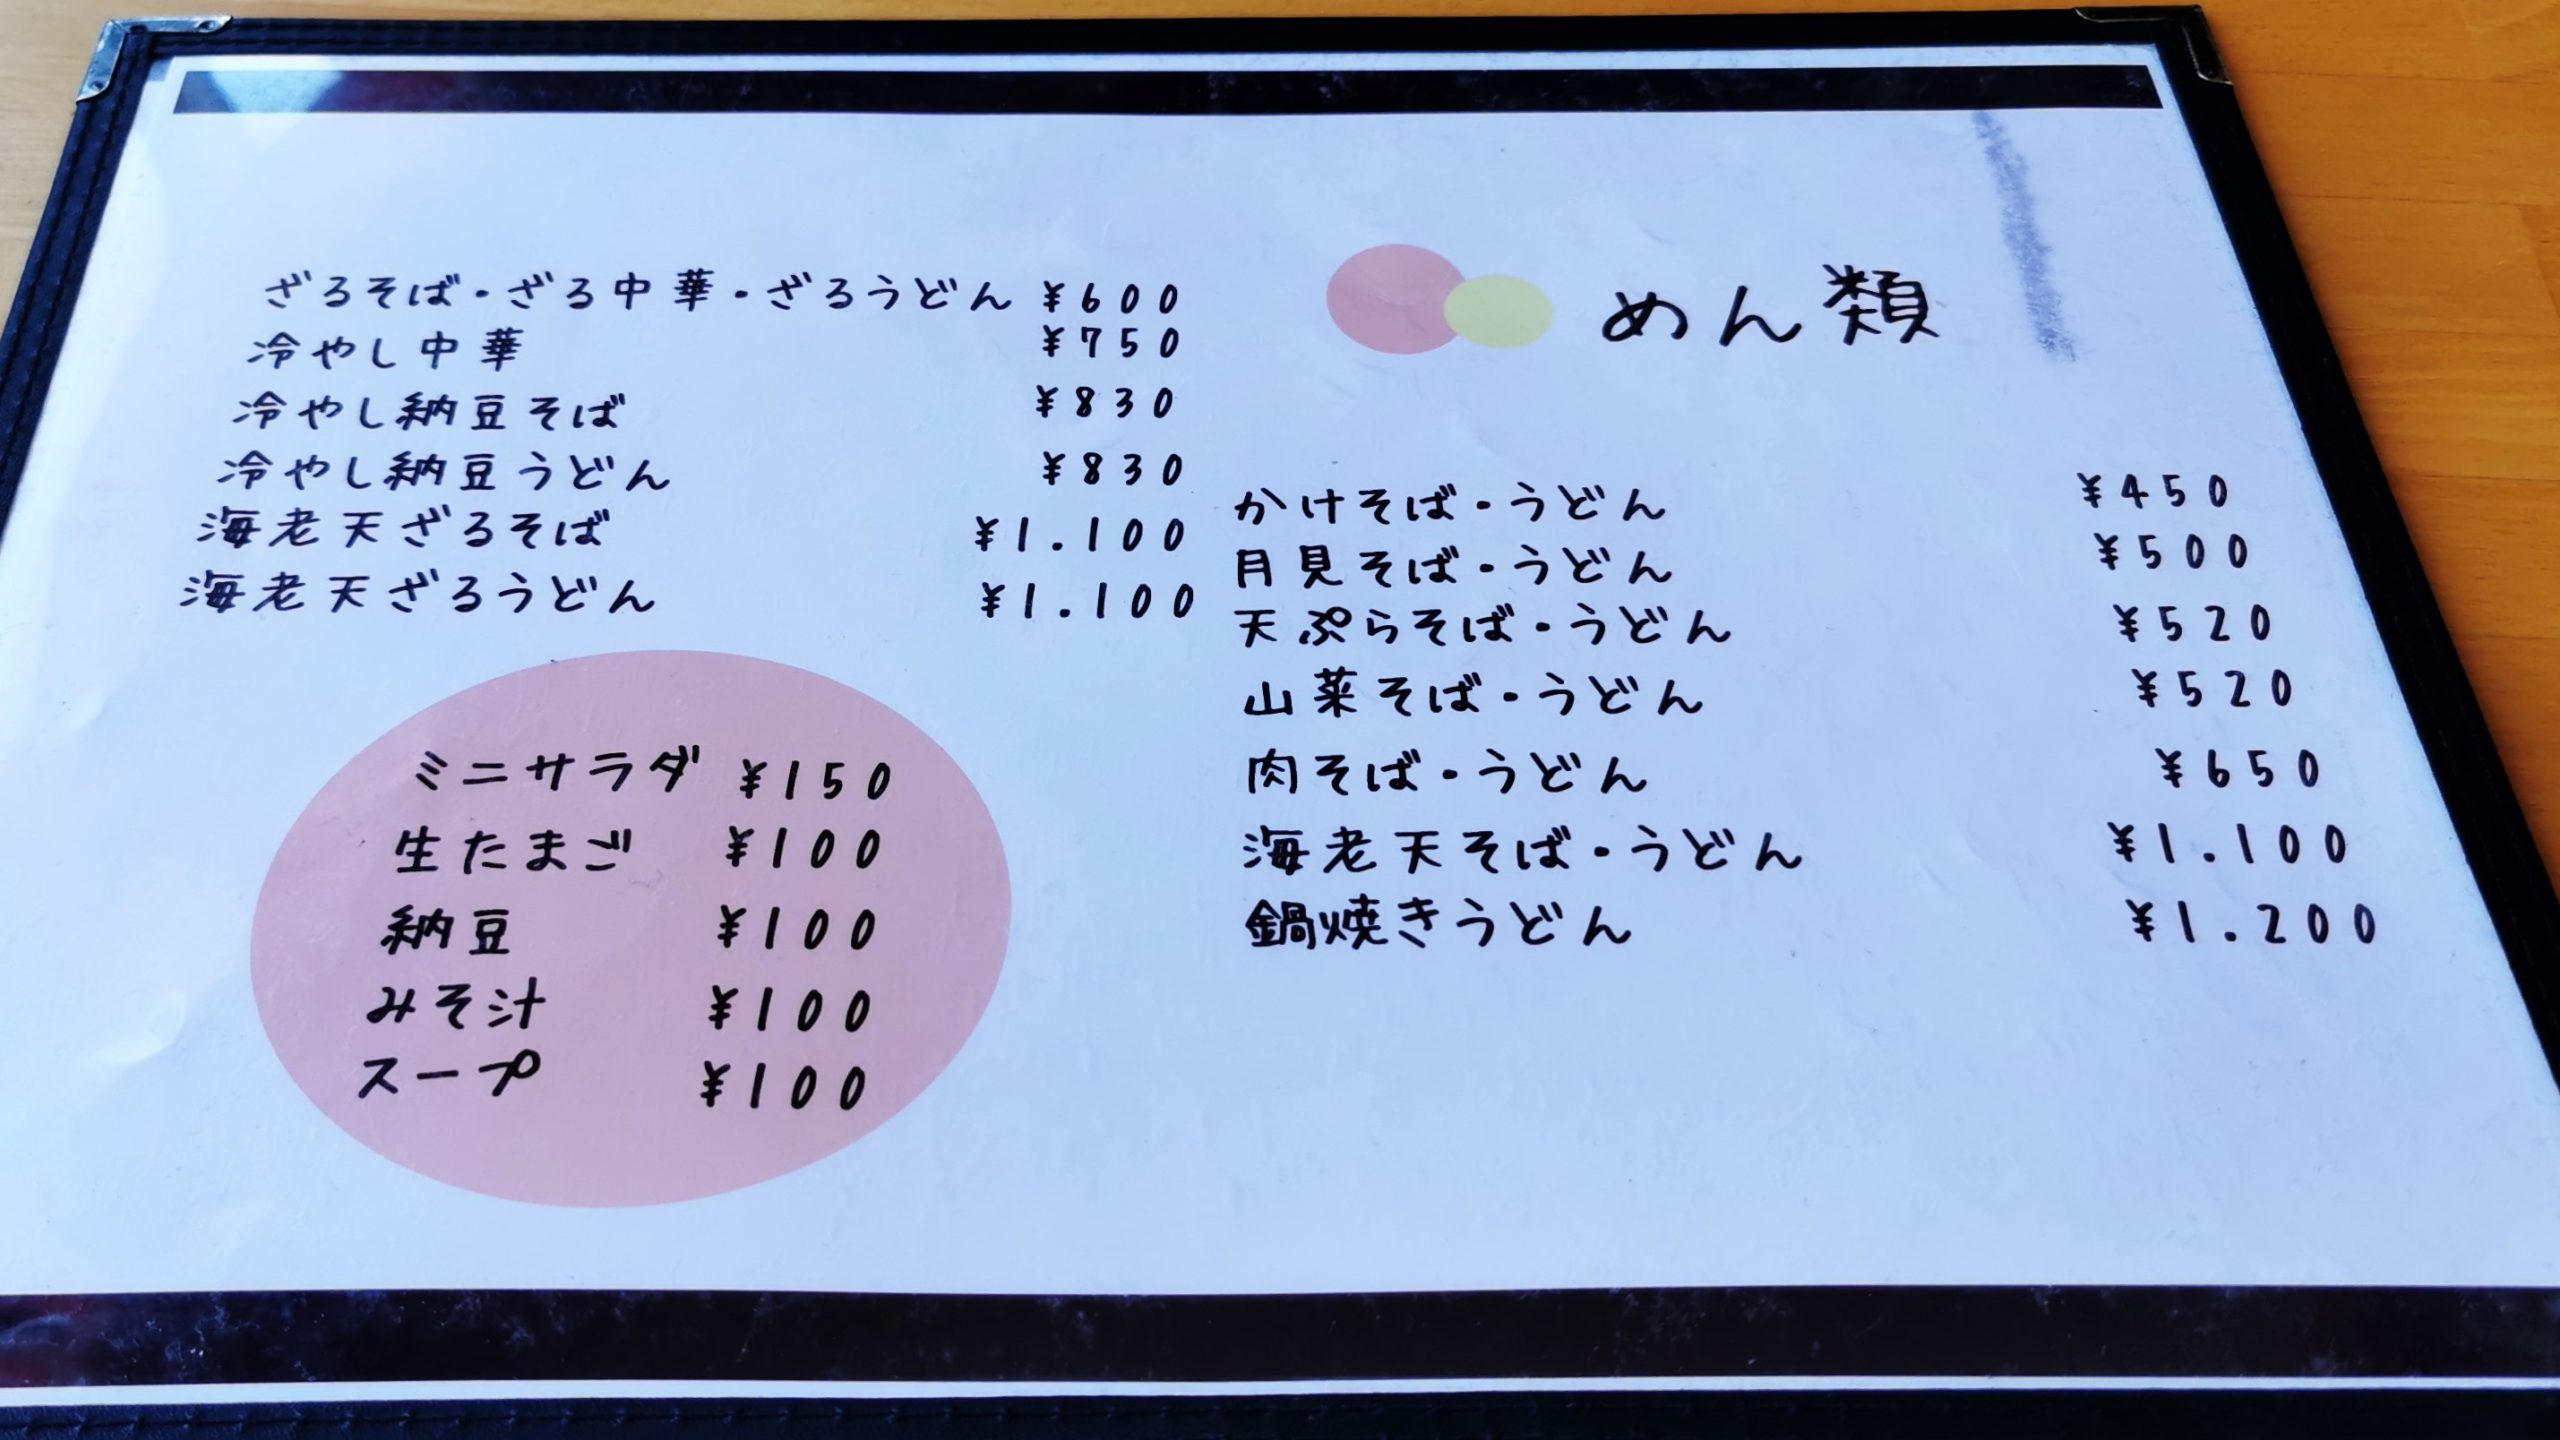 めん類
かけそば・うどん ¥450
月見そば・うどん ¥500
天ぷらそば・うどん ¥520
山菜そば・うどん ¥520
肉そば・うどん ¥650
海老天そば・うどん ¥1.100
鍋焼きうどん ¥1.200
ざるそば・ざる中華・ざるうどん ¥600
冷やし中華 ¥750
冷やし納豆そば ¥830
冷やし納豆うどん ¥830
海老天ざるそば ¥1.100
海老天ざるうどん ¥1.100
ミニサラダ ¥150
生たまご ¥100
納豆 ¥100
みそ汁 ¥100
スープ ¥100